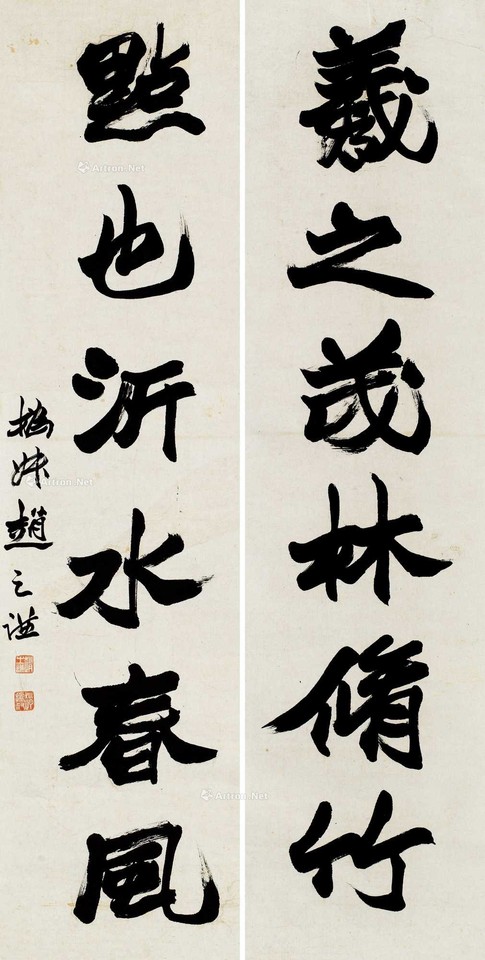 羲之茂林脩竹
點也沂水春風
撝叔趙之謙
Artron.Net
Artron.Net
Artron.Net